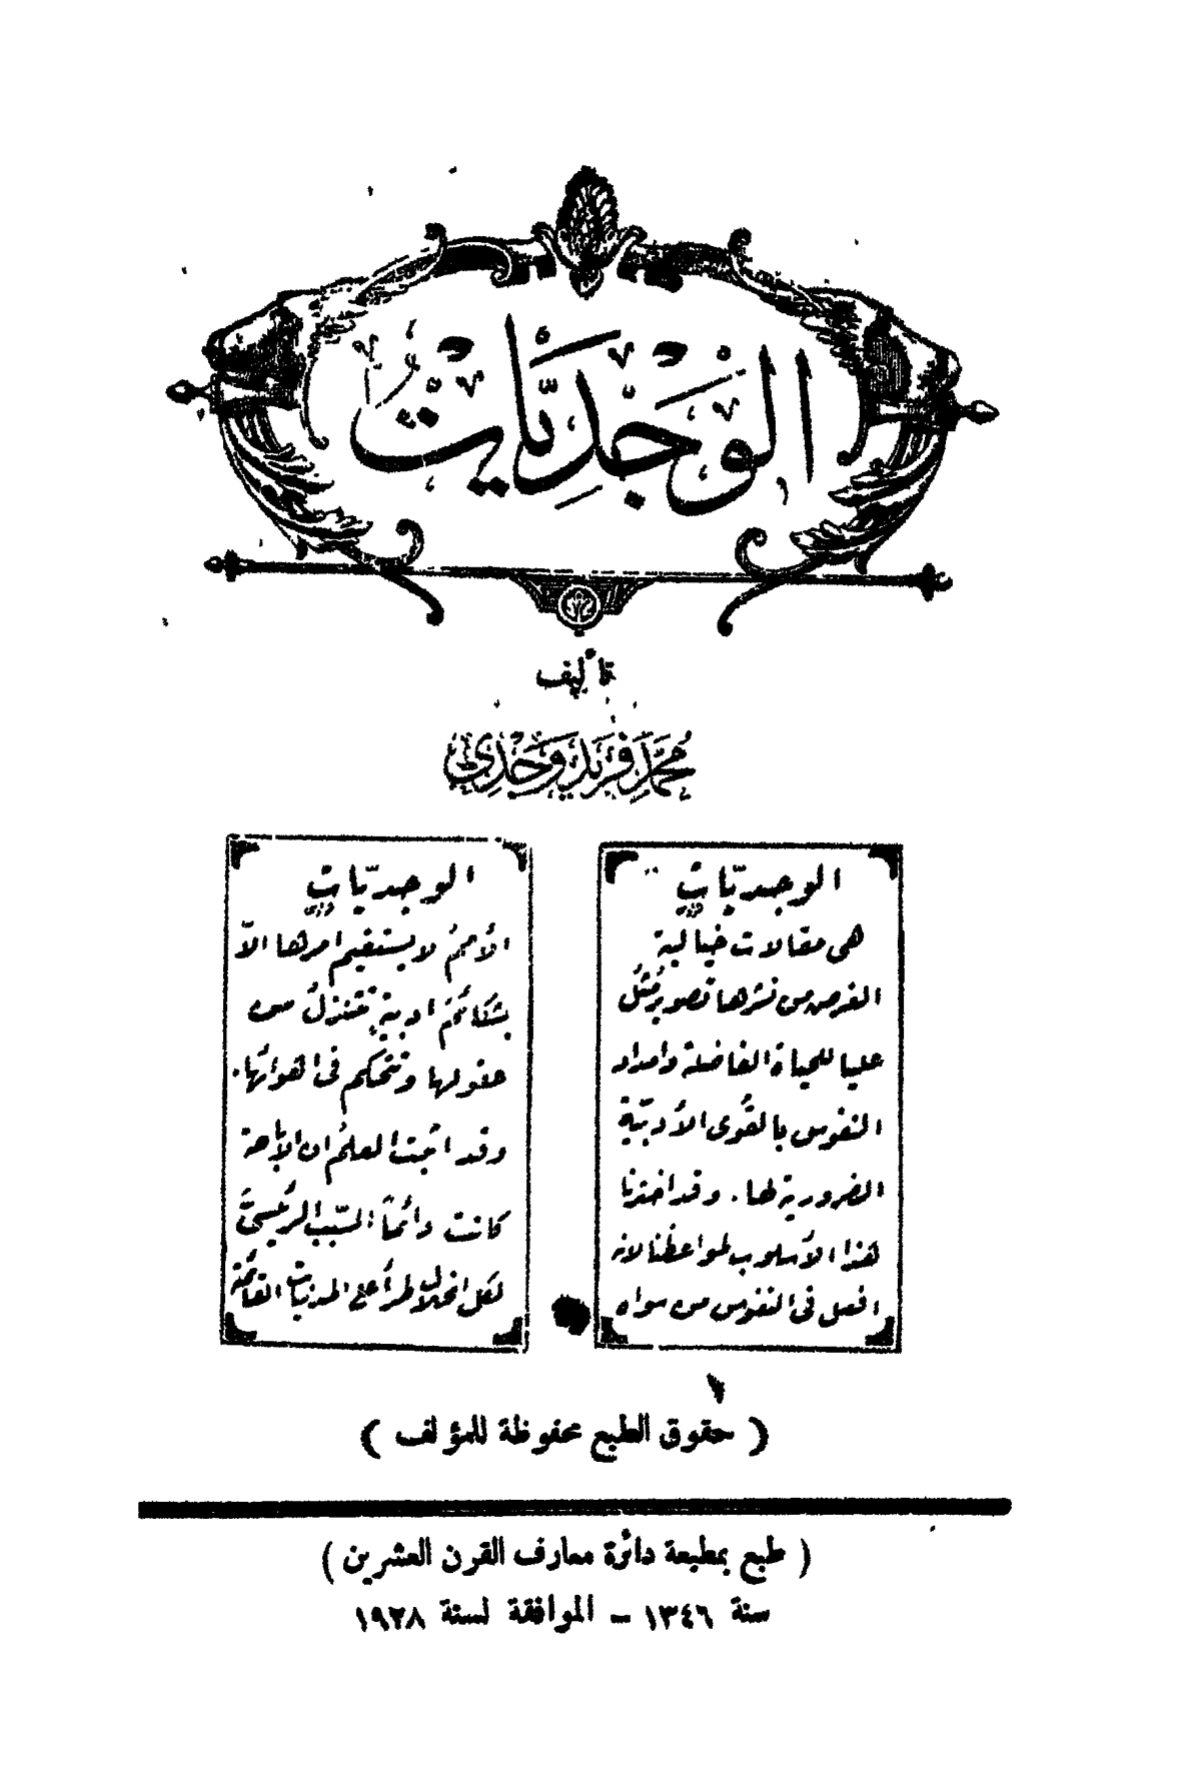 الوَجْدِيَّاتُ
تأليف
مُحَمَّد فَرِيد وَجْدِي
الوجديّات
هى مقالات خيالية
الغرض من نشرها تصوير مُثُل
عليا للحياة الفاضلة وامداد
النفوس بالقُوى الأدبيّة
الضرورية لها. وقد اخترنا
هذا الأسلوب لمواعظنا لانه
افعل فى النفوس من سواه
الوجديّات
الأممُ لا يستقيم امرها الاّ
بشكائمَ ادبيةٍ تتنزل من
عقولها وتتحكم فى اهوائها.
وقد اثبت العلمُ ان الاباحة
كانت دائماً السّبب الرئيسىَّ
لكل انحلال طرأ على المدنيات القائمة
( حقوق الطبع محفوظة للمؤلف )
( طبع بمطبعة دائرة معارف القرن العشرين )
سنة ١٣٤٦ – الموافقة لسنة ١٩٢٨